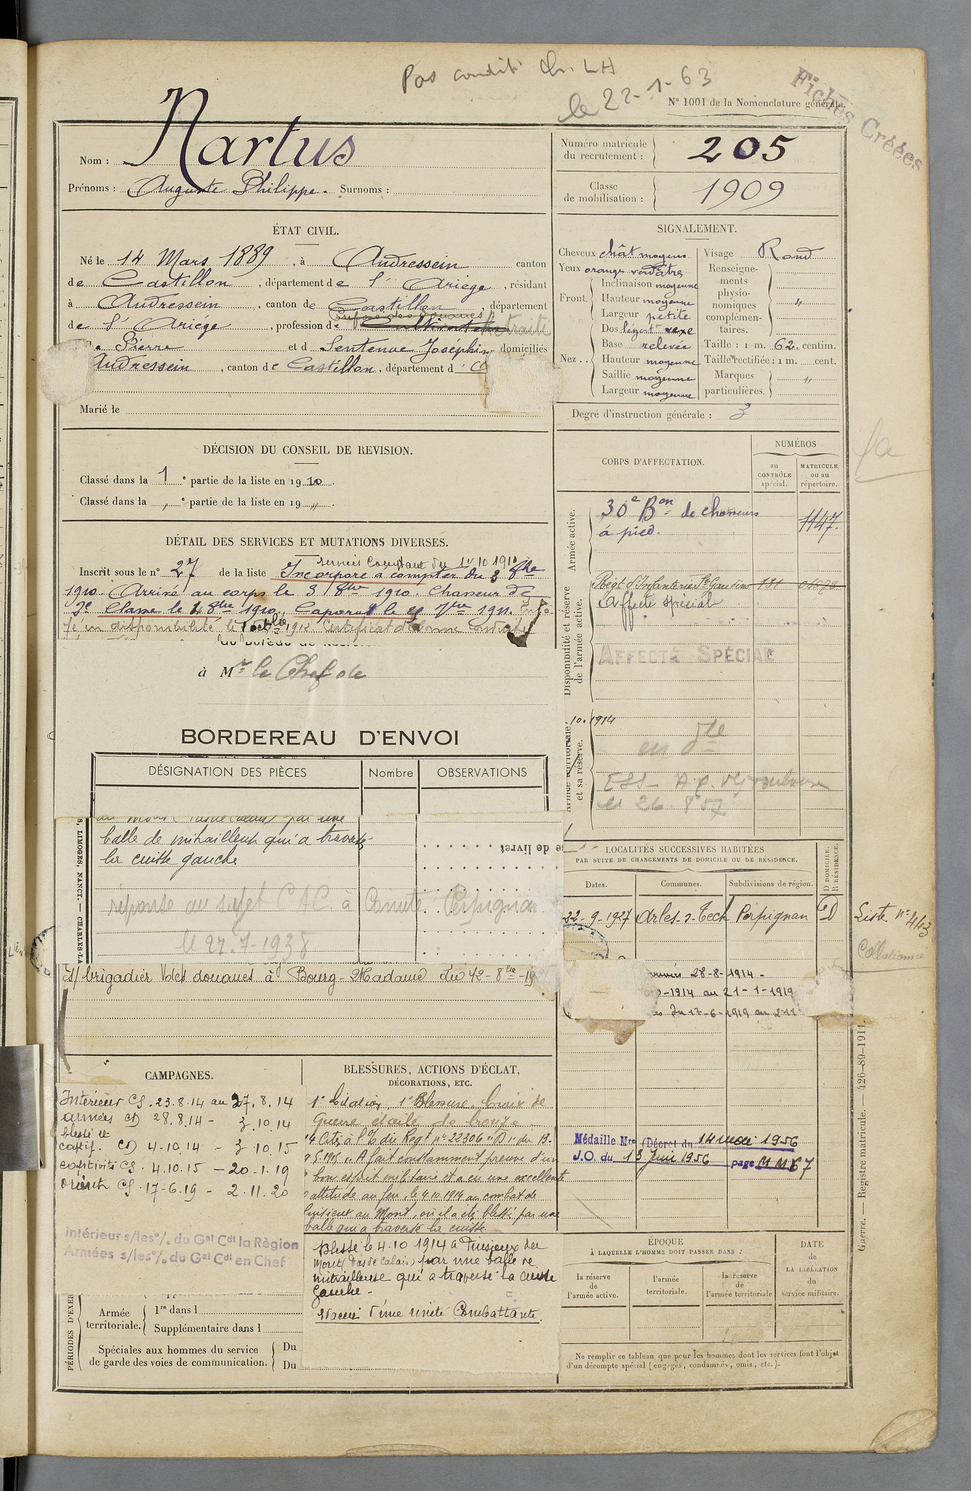 Pas condit. Ch. LH
le 22-1-63
N° 1001 de la Nomenclature générale.
Fiches Créées
Nom : Nartus
Prénoms : Auguste Philippe. Surnoms :
Numéro matricule du recrutement : 205
Classe de mobilisation : 1909
ÉTAT CIVIL.
Né le 14 Mars 1889, à Audressein canton
de Castillon, département de l'Ariège, résidant
à Audressein, canton de Castillon, département
de l'Ariège, profession de Cultivateur retraité
Pierre et d Sentenac Joséphine domiciliés
Audressein, canton de Castillon, département d
Marié le
SIGNALEMENT.
Cheveux chât moyens
Yeux orangé verdâtre
Front. Inclinaison moyenne
Hauteur moyenne
Largeur petite
Nez Dos légent vexe
Base relevée
Hauteur moyenne
Saillie moyenne
Largeur moyenne
Visage Rond
Renseignements physionomiques complémentaires. "
Taille : 1 m. 62 centim.
Taille rectifiée : 1 m. cent.
Marques particulières. "
Degré d'instruction générale : 3
DÉCISION DU CONSEIL DE REVISION.
Classé dans la 1e partie de la liste en 1910.
Classé dans la e partie de la liste en 19 ".
CORPS D'AFFECTATION.
NUMÉROS
au CONTRÔLE spécial.
MATRICULE ou au répertoire.
Armée active.
30e Bon de chasseurs
à pied.
1147.
Disponibilité et réserve de l'armée active.
Affecté spécial
AFFECTÉ SPÉCIAL
et sa réserve.
10.1914
DÉTAIL DES SERVICES ET MUTATIONS DIVERSES.
Services Comptant du 10 1910
Inscrit sous le n° 27 de la liste Incorporé à compter du 3 8bre
1910. Arrivé au corps le 3 8bre 1910. Chasseur de
2e Classe le 3 8bre 1910. Caporal le 7bre 1911.
en disponibilité le 1912 Certificat de bonne conduite
à Mr le Chef de
BORDEREAU D'ENVOI
DÉSIGNATION DES PIÈCES
Nombre
OBSERVATIONS
S, LIMOGES, NANCY. — CHARLES-LA
balle de mitrailleuse qui a traversé
la cuisse gauche
réponse au sujet C AC. à Comité Perpignan
le 27-7-1938
S/ brigadier des douanes à Bourg-Madame du
LOCALITÉS SUCCESSIVES HABITÉES
PAR SUITE DE CHANGEMENTS DE DOMICILE OU DE RÉSIDENCE.
Dates.
Communes.
Subdivisions de région.
D DOMICILE, R RÉSIDENCE.
22-9-1927 Arles s-Tech Perpignan D
28-8-1914 -
-1914 au 21-1-1919
du 17-6-1919 au 2-11
Liste n° 443
Collationné
CAMPAGNES.
Intérieur CS. 23.8.14 au 27.8.14
armées CD 28.8.14 - 3.10.14
blessé et
captif. CD 4.10.14 - 3.10.15
captivité CS. 4.10.15 - 20.1.19
orient CS. 17-6.19 - 2.11.20
Intérieur s/les°/. du Gal Cdt la Région
Armées s/les°/. du Gal Cdt en Chef
BLESSURES, ACTIONS D'ÉCLAT,
DÉCORATIONS, ETC.
1e Citation, 1e Blessure. Croix de
Guerre étoile de bronze.
Cité à l'O. du Regt n° 22306 "D" du 13.
"A fait constamment preuve d'un
bon esprit militaire et a eu une excellente
attitude au feu, le 4.10.1914 au combat de
Puisieux au Mont, où il a été blessé par une
balle qui a traversé la cuisse.
Blessé le 4-10 1914 à Puisieux au
Mont (Pas de Calais) par une balle de
mitrailleuse qui a traversé la cuisse
gauche -
d'une unité Combattante.
Médaille Mre (Décret du 14 mai 1956
J.O. du 13 Juin 1956 page
PÉRIODES D'EXER
Armée territoriale. 1re dans l
Supplémentaire dans l
Spéciales aux hommes du service de garde des voies de communication. Du
Du
ÉPOQUE
À LAQUELLE L'HOMME DOIT PASSER DANS :
la réserve de l'armée active.
l'armée territoriale.
la réserve de l'armée territoriale
DATE de LA LIBÉRATION du service militaire.
Ne remplir ce tableau que pour les hommes dont les services font l'objet
d'un décompte spécial (engagés, condamnés, omis, etc.).
Guerre. — Registre matricule. — 426-89-1911.